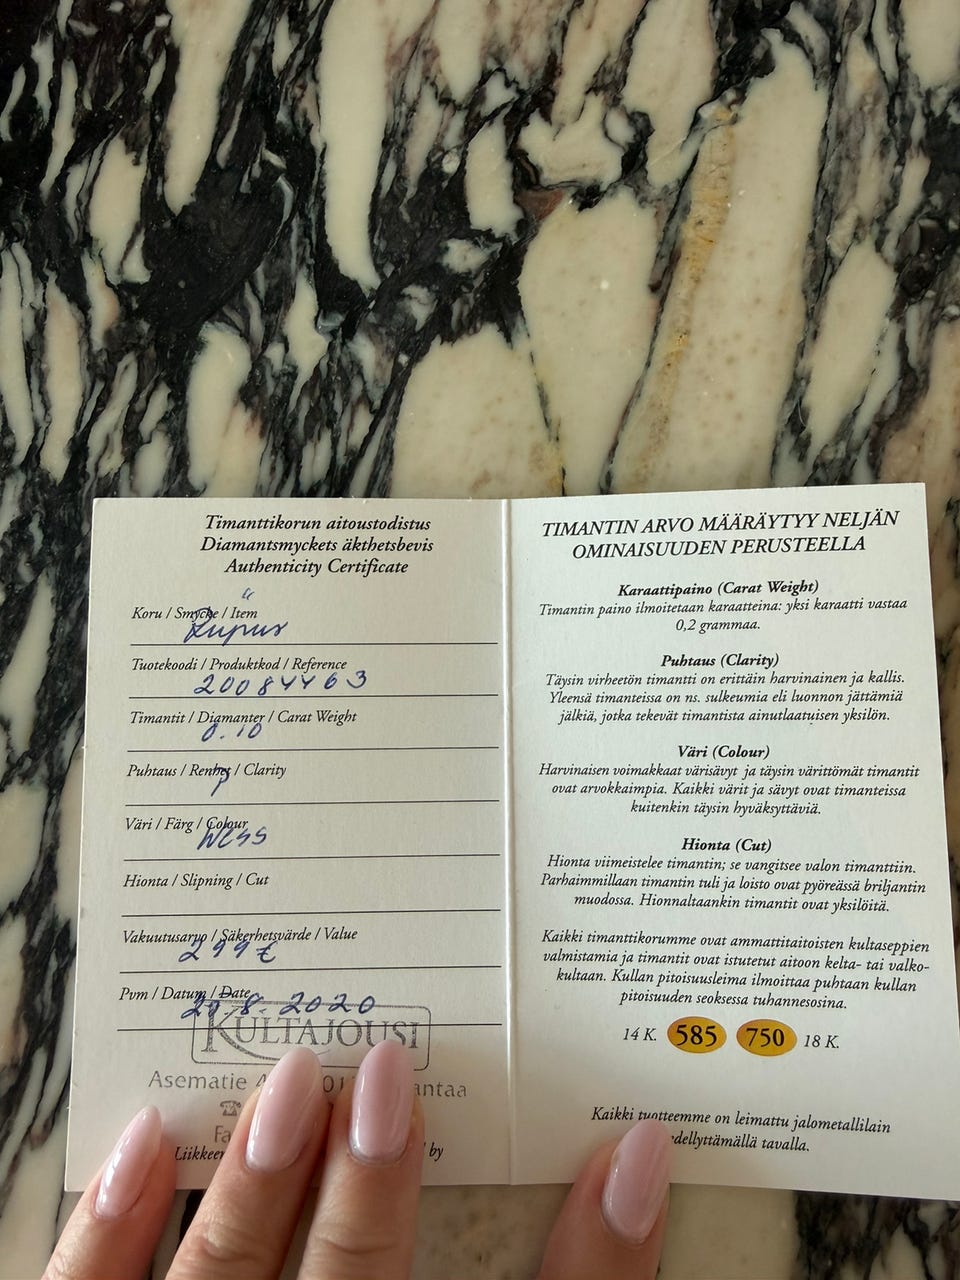 Timanttikorun aitoustodistus
Diamantsmyckets äkthetsbevis
Authenticity Certificate
Koru / Smycke / Item
Tuotekoodi / Produktkod / Reference
20084463
Timantit / Diamanter / Carat Weight
0.10
Puhtaus / Renhet / Clarity
P
Väri / Färg / Colour
Wess
Hionta / Slipning / Cut
Vakuutusarvo / Säkerhetsvärde / Value
299 €
Pvm / Datum / Date
8. 2020
KULTAJOUSI
Asematie
Liikkeen
by
TIMANTIN ARVO MÄÄRÄYTYY NELJÄN
OMINAISUUDEN PERUSTEELLA
Karaattipaino (Carat Weight)
Timantin paino ilmoitetaan karaatteina: yksi karaatti vastaa
0,2 grammaa.
Puhtaus (Clarity)
Täysin virheetön timantti on erittäin harvinainen ja kallis.
Yleensä timanteissa on ns. sulkeumia eli luonnon jättämiä
jälkiä, jotka tekevät timantista ainutlaatuisen yksilön.
Väri (Colour)
Harvinaisen voimakkaat värisävyt ja täysin värittömät timantit
ovat arvokkaimpia. Kaikki värit ja sävyt ovat timanteissa
kuitenkin täysin hyväksyttäviä.
Hionta (Cut)
Hionta viimeistelee timantin; se vangitsee valon timanttiin.
Parhaimmillaan timantin tuli ja loisto ovat pyöreässä briljantin
muodossa. Hionnaltaankin timantit ovat yksilöitä.
Kaikki timanttikorumme ovat ammattitaitoisten kultaseppien
valmistamia ja timantit on istutetut aitoon kelta- tai valko-
kultaan. Kullan pitoisuusleima ilmoittaa puhtaan kullan
pitoisuuden seoksessa tuhannesosina.
14 K. 585 750 18 K.
Kaikki tuotteemme on leimattu jalometallilain
edellyttämällä tavalla.